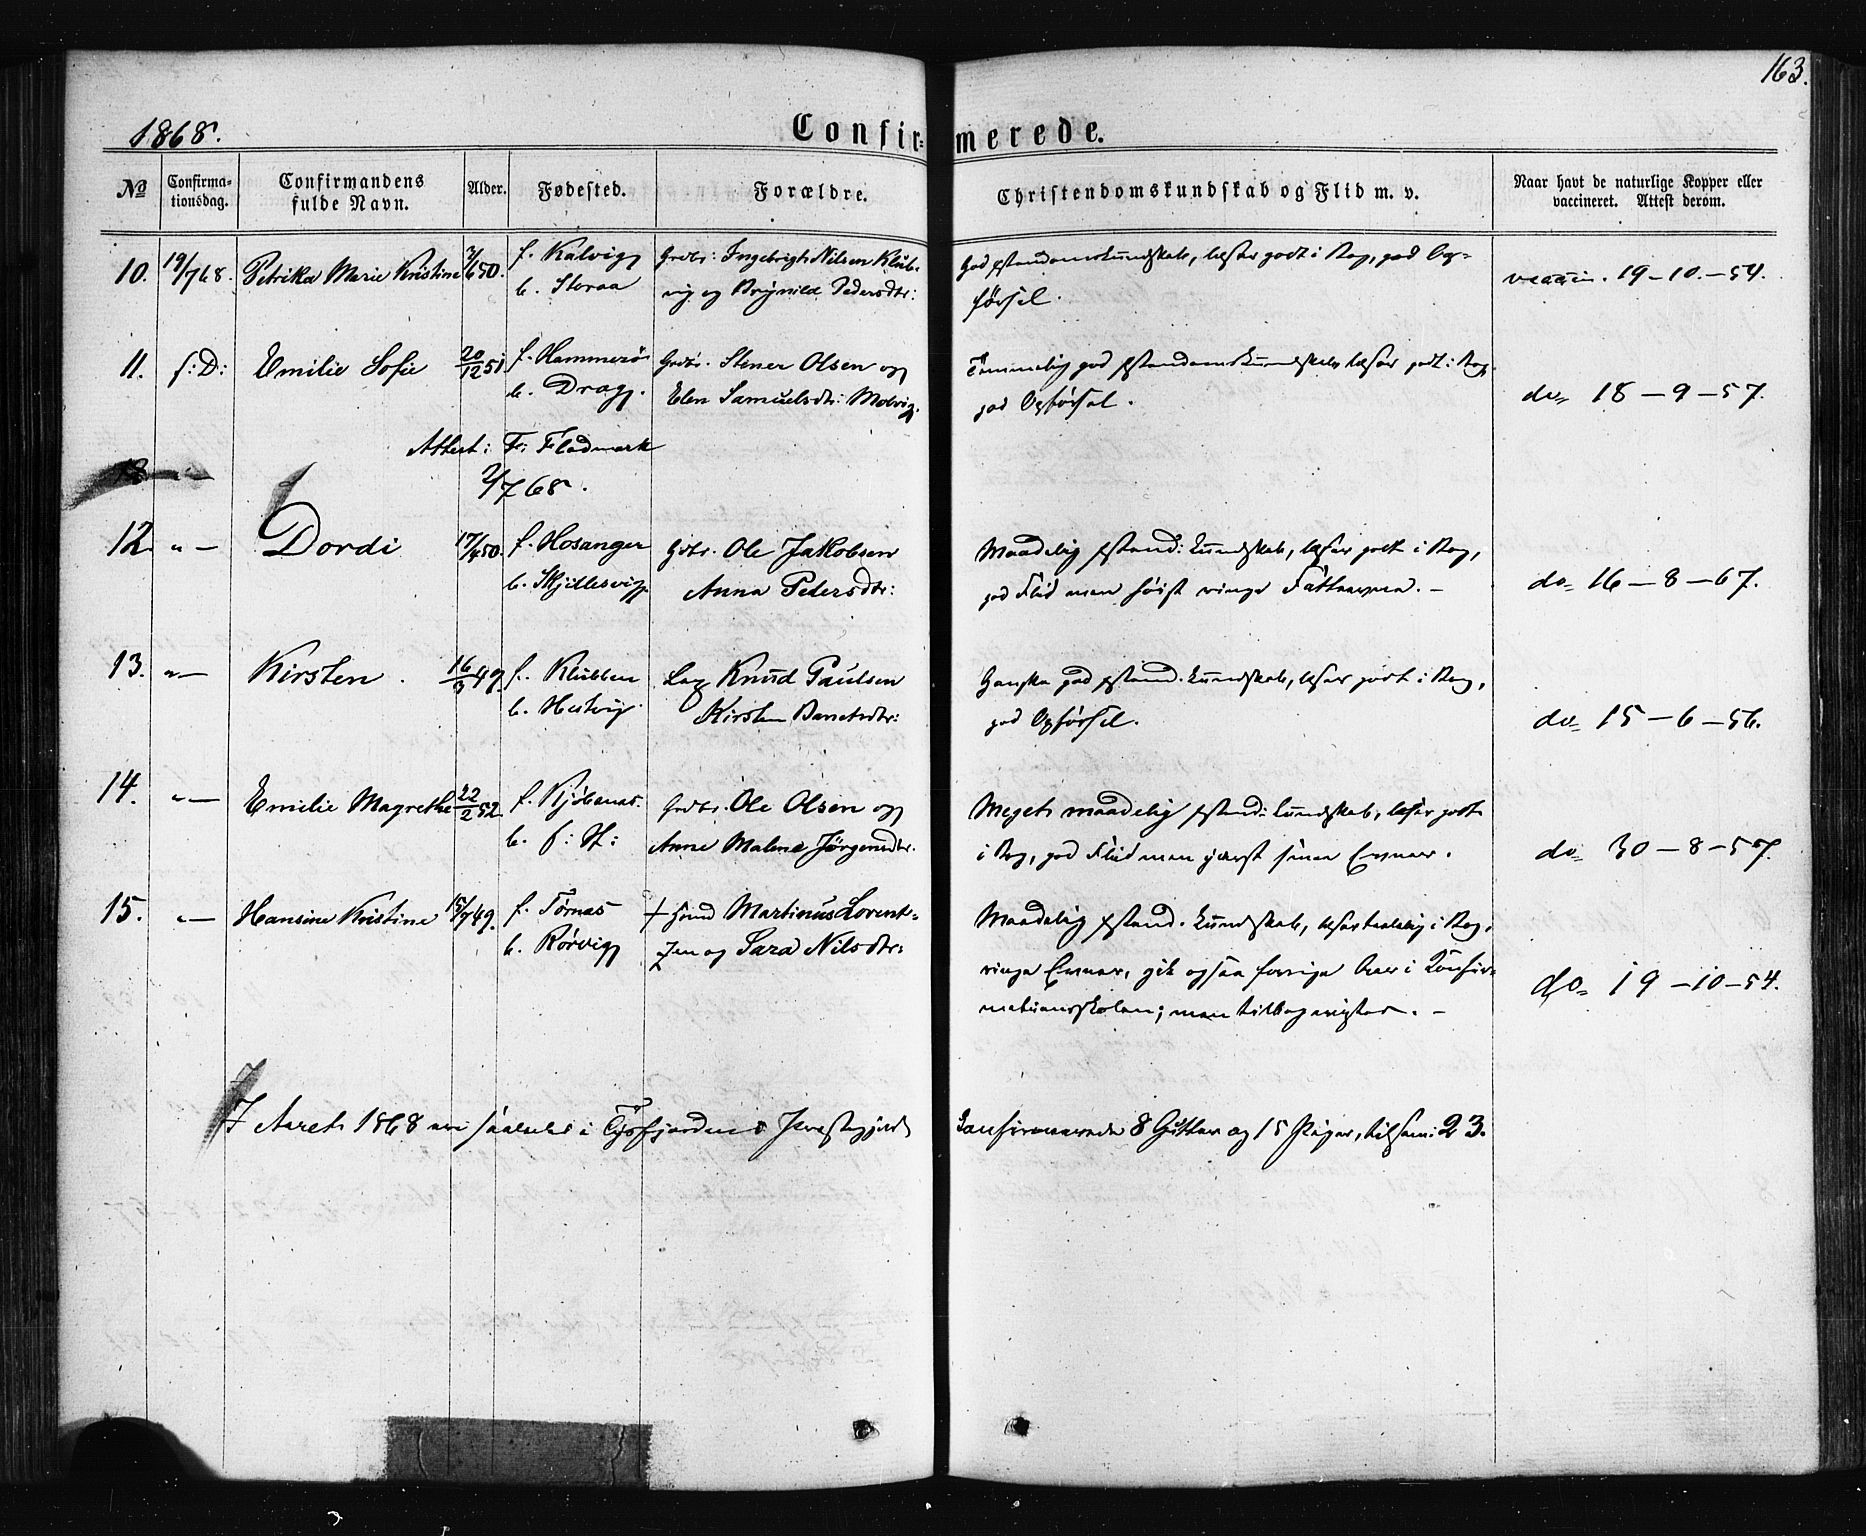 163.
1868.
Confirmerede.
No
Confirmationsdag.
Confirmandens fulde Navn.
Alder.
Fødested.
Forældre.
Christendomskundskab og Flid m. v.
Naar havt de naturlige Kopper eller vaccineret. Attest derom.
10. 19/7 68. Petrikka Marie Kristine 650. f. Kalvigg Grdbr: Ingebrigt Nilsen
b. Storaa og Brynild Pedersdtr:
God Kundskab, læser godt i Bog, god Op-
førsel.
vaccin. 19-10-54.
11. s: D: Emilie Sofie 20/12 51 f. Hammerø Grdbr. Stener Olsen og
b. Drag. Elen Samuelsdtr:
Temmelig god Kristendomskundskab læser godt i Bog,
god Opførsel.
do 18-9-57.
Attest: F: Fladmark
2/7 68.
12. " — Dordi 17/4 50. f. Hosanger Gdbr. Ole Jakobsen
b. Skjellesvig Anna Petersdtr:
Maadelig Kristend: Kundskab, læser godt i Bog,
god Flid men høist ringe Fatteevne. —
do 16-8-67.
13. " — Kirsten. 16/3 49. f. Klubben Knud Paulsen
b. Kirsten
Ganske god Kristend. Kundskab, læser godt i Bog,
god Opførsel.
do 15-6-56.
14. " — Emelie Magrethe 22/2 52. f. Kjøbenas. Grdbr. Ole Olsen og
b. s: St: Anne Malene Jørgensdtr.
Meget maadelig Kristend: Kundskab, læser godt
i Bog, god Flid men Evner.
do 30-8-57.
15. " — Hansine Kristine 15/7 49. f. Tørnas + Martinus Lorent-
b. Rørvig zen og Sara Nilsdtr:
Maadelig Kristend. Kundskab, læser i Bog,
ringe Evner, gik ogsaa forrige Aar i Konfir-
mationsskolen; men
do 19-10-54.
I Aaret 1868 ere saaledes i Tysfjordens Præstegjeld Konfirmerede 8 Gutter og 15 Piger, tilsam: 23.